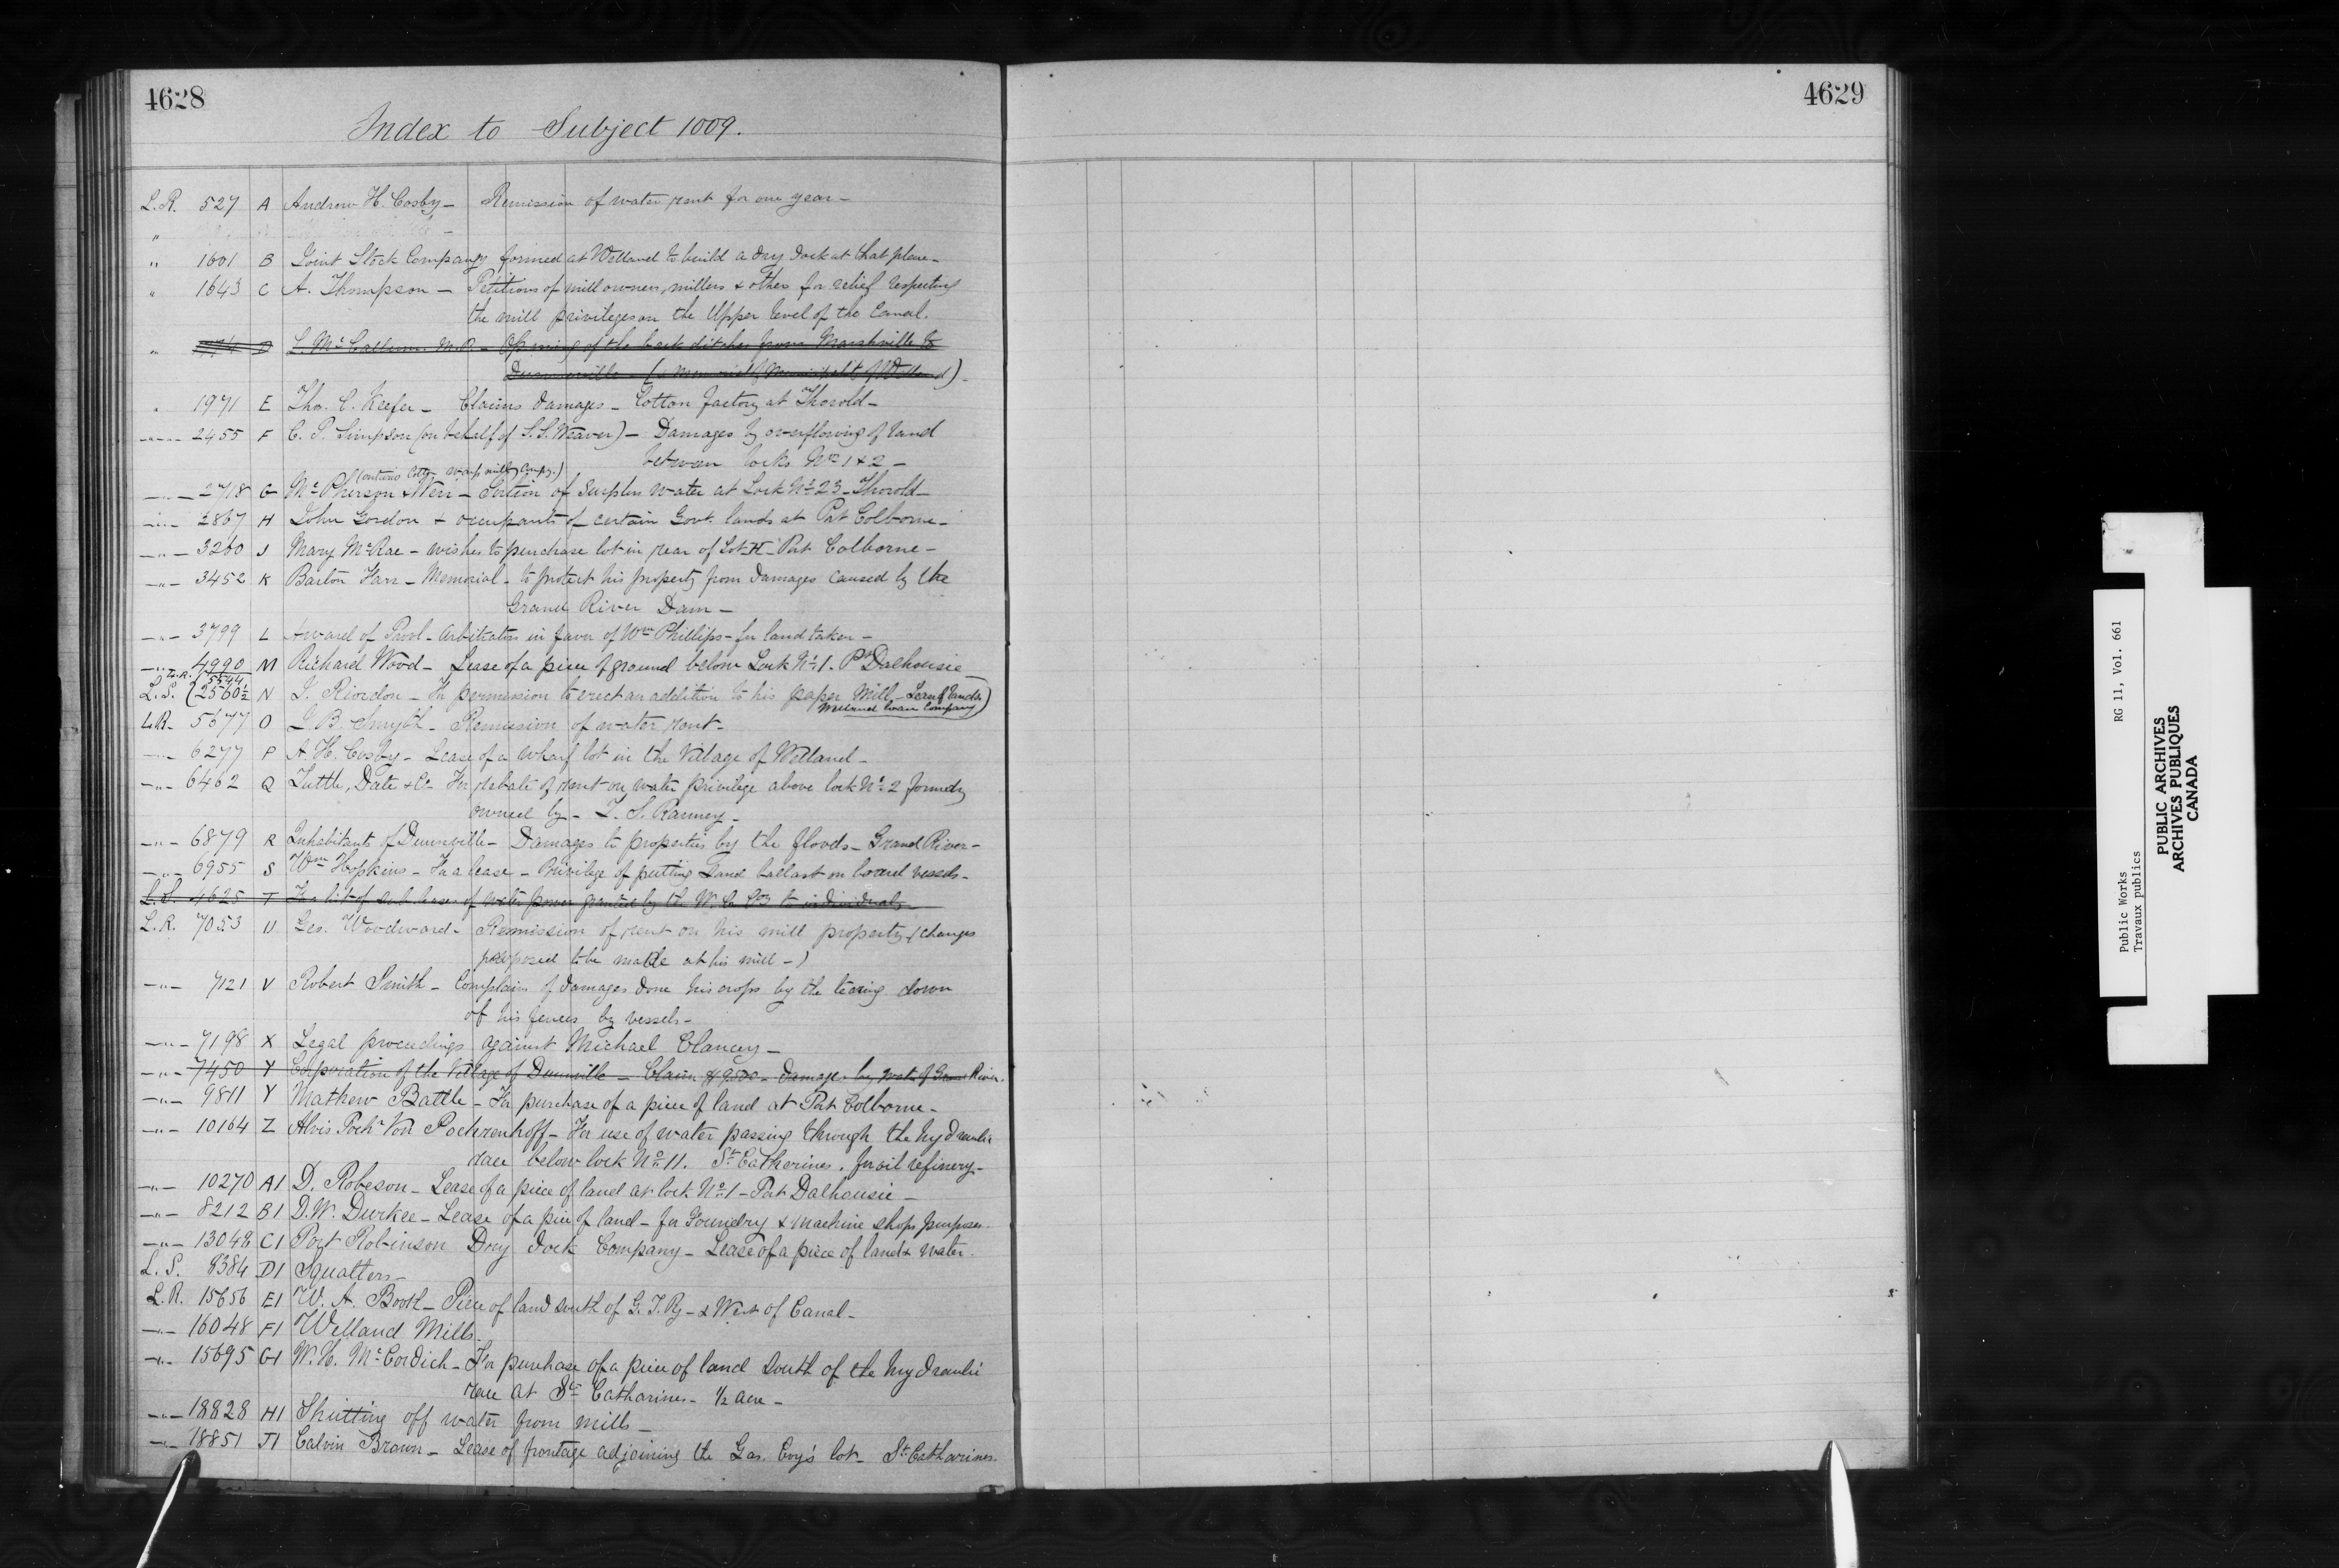 4628
4629
Index to Subject 1009.
L.R. 527 A Andrew H. Cosby - Remission of water rent for one year -
"
" 1601 B Joint Stock Company formed at Welland to build a dry dock at that place -
" 1643 C A. Thompson - Petitions of mill owners, millers & others for relief respecting
the mill privileges on the Upper level of the Canal.
" D L. McCallum M.P. - Opening of the back ditches from Marshville to
Dunnville ( Memorial of Municipality of Welland) -
" 1971 E Tho. C. Keefer - Claims damages - Cotton factory at Thorold -
-"- 2455 F C. P. Simpson (on behalf of S.S. Weaver) - Damages by overflowing of land
between locks Nos 1 & 2 -
(Ontario Cotton Warp Mills Compy.)
-"- 2718 G McPherson & Weir - Section of Surplus water at Lock No 23 - Thorold -
-"- 2867 H John Gordon & occupants of certain Govt. lands at Port Colborne -
-"- 3260 J Mary McRae - wishes to purchase lot in rear of Lot H - Port Colborne -
-"- 3452 K Barton Farr - Memorial - to protect his property from damages caused by the
Grand River Dam -
-"- 3799 L Award of Provl. Arbitrators in favor of Wm Phillips - for land taken -
-"- 4990 M Richard Wood - Lease of a piece of ground below Lock No 1. Pt Dalhousie -
L.R. 5544
L.S. (2560½ N J. Riordon - For permission to erect an addition to his paper Mill - Lease of lands
Welland Loan Company)
L.R. 5677 O J. B. Smyth - Remission of water rent -
-"- 6277 P A. H. Cosby - Lease of a wharf lot in the Village of Welland -
-"- 6462 Q Tuttle, Date & Co - For rebate of rent on water privilege above lock No 2 formerly
owned by - L. S. Ranney -
-"- 6879 R Inhabitants of Dunnville - Damages to properties by the floods - Grand River -
-"- 6955 S Wm Hopkins - For a lease - Privilege of putting Sand ballast on board vessels -
L.S. 4625 T For list of sub leases of water power granted by the W. Co to individuals
L.R. 7053 U Geo. Woodward - Remission of rent on his mill property (changes
proposed to be made at his mill -)
-"- 7121 V Robert Smith - Complains of damages done his crops by the tearing down
of his fences by vessels -
-"- 7198 X Legal proceedings against Michael Clancy -
-"- 7450 Y Corporation of the Village of Dunnville - Claim $9500 - damages by water of Grand River.
-"- 9811 Y Mathew Battle - For purchase of a piece of land at Port Colborne -
-"- 10164 Z Alvis Poch Von Pochrenhoff - For use of water passing through the hydraulic
race below lock No 11. St Catherines. for oil refinery -
-"- 10270 A1 D. Robeson - Lease of a piece of land at lock No 1 - Port Dalhousie -
-"- 8212 B1 D.W. Durkee - Lease of a piece of land - for Foundry & Machine shops purposes -
-"- 13048 C1 Port Robinson Dry Dock Company - Lease of a piece of land & water -
L.S. 8384 D1 Squatters -
L.R. 15656 E1 W. A. Booth - Piece of land south of G.T.Ry - & West of Canal -
-"- 16048 F1 Welland Mills -
-"- 15695 G1 W.H. McCordick - For purchase of a piece of land South of the hydraulic
race at St Catharines - ½ acre -
-"- 18828 H1 Shutting off water from mills -
-"- 18851 J1 Calvin Brown - Lease of frontage adjoining the Gas. Coy's lot - St Catharines.
Public Works
Travaux publics
RG 11, Vol. 661
PUBLIC ARCHIVES
ARCHIVES PUBLIQUES
CANADA